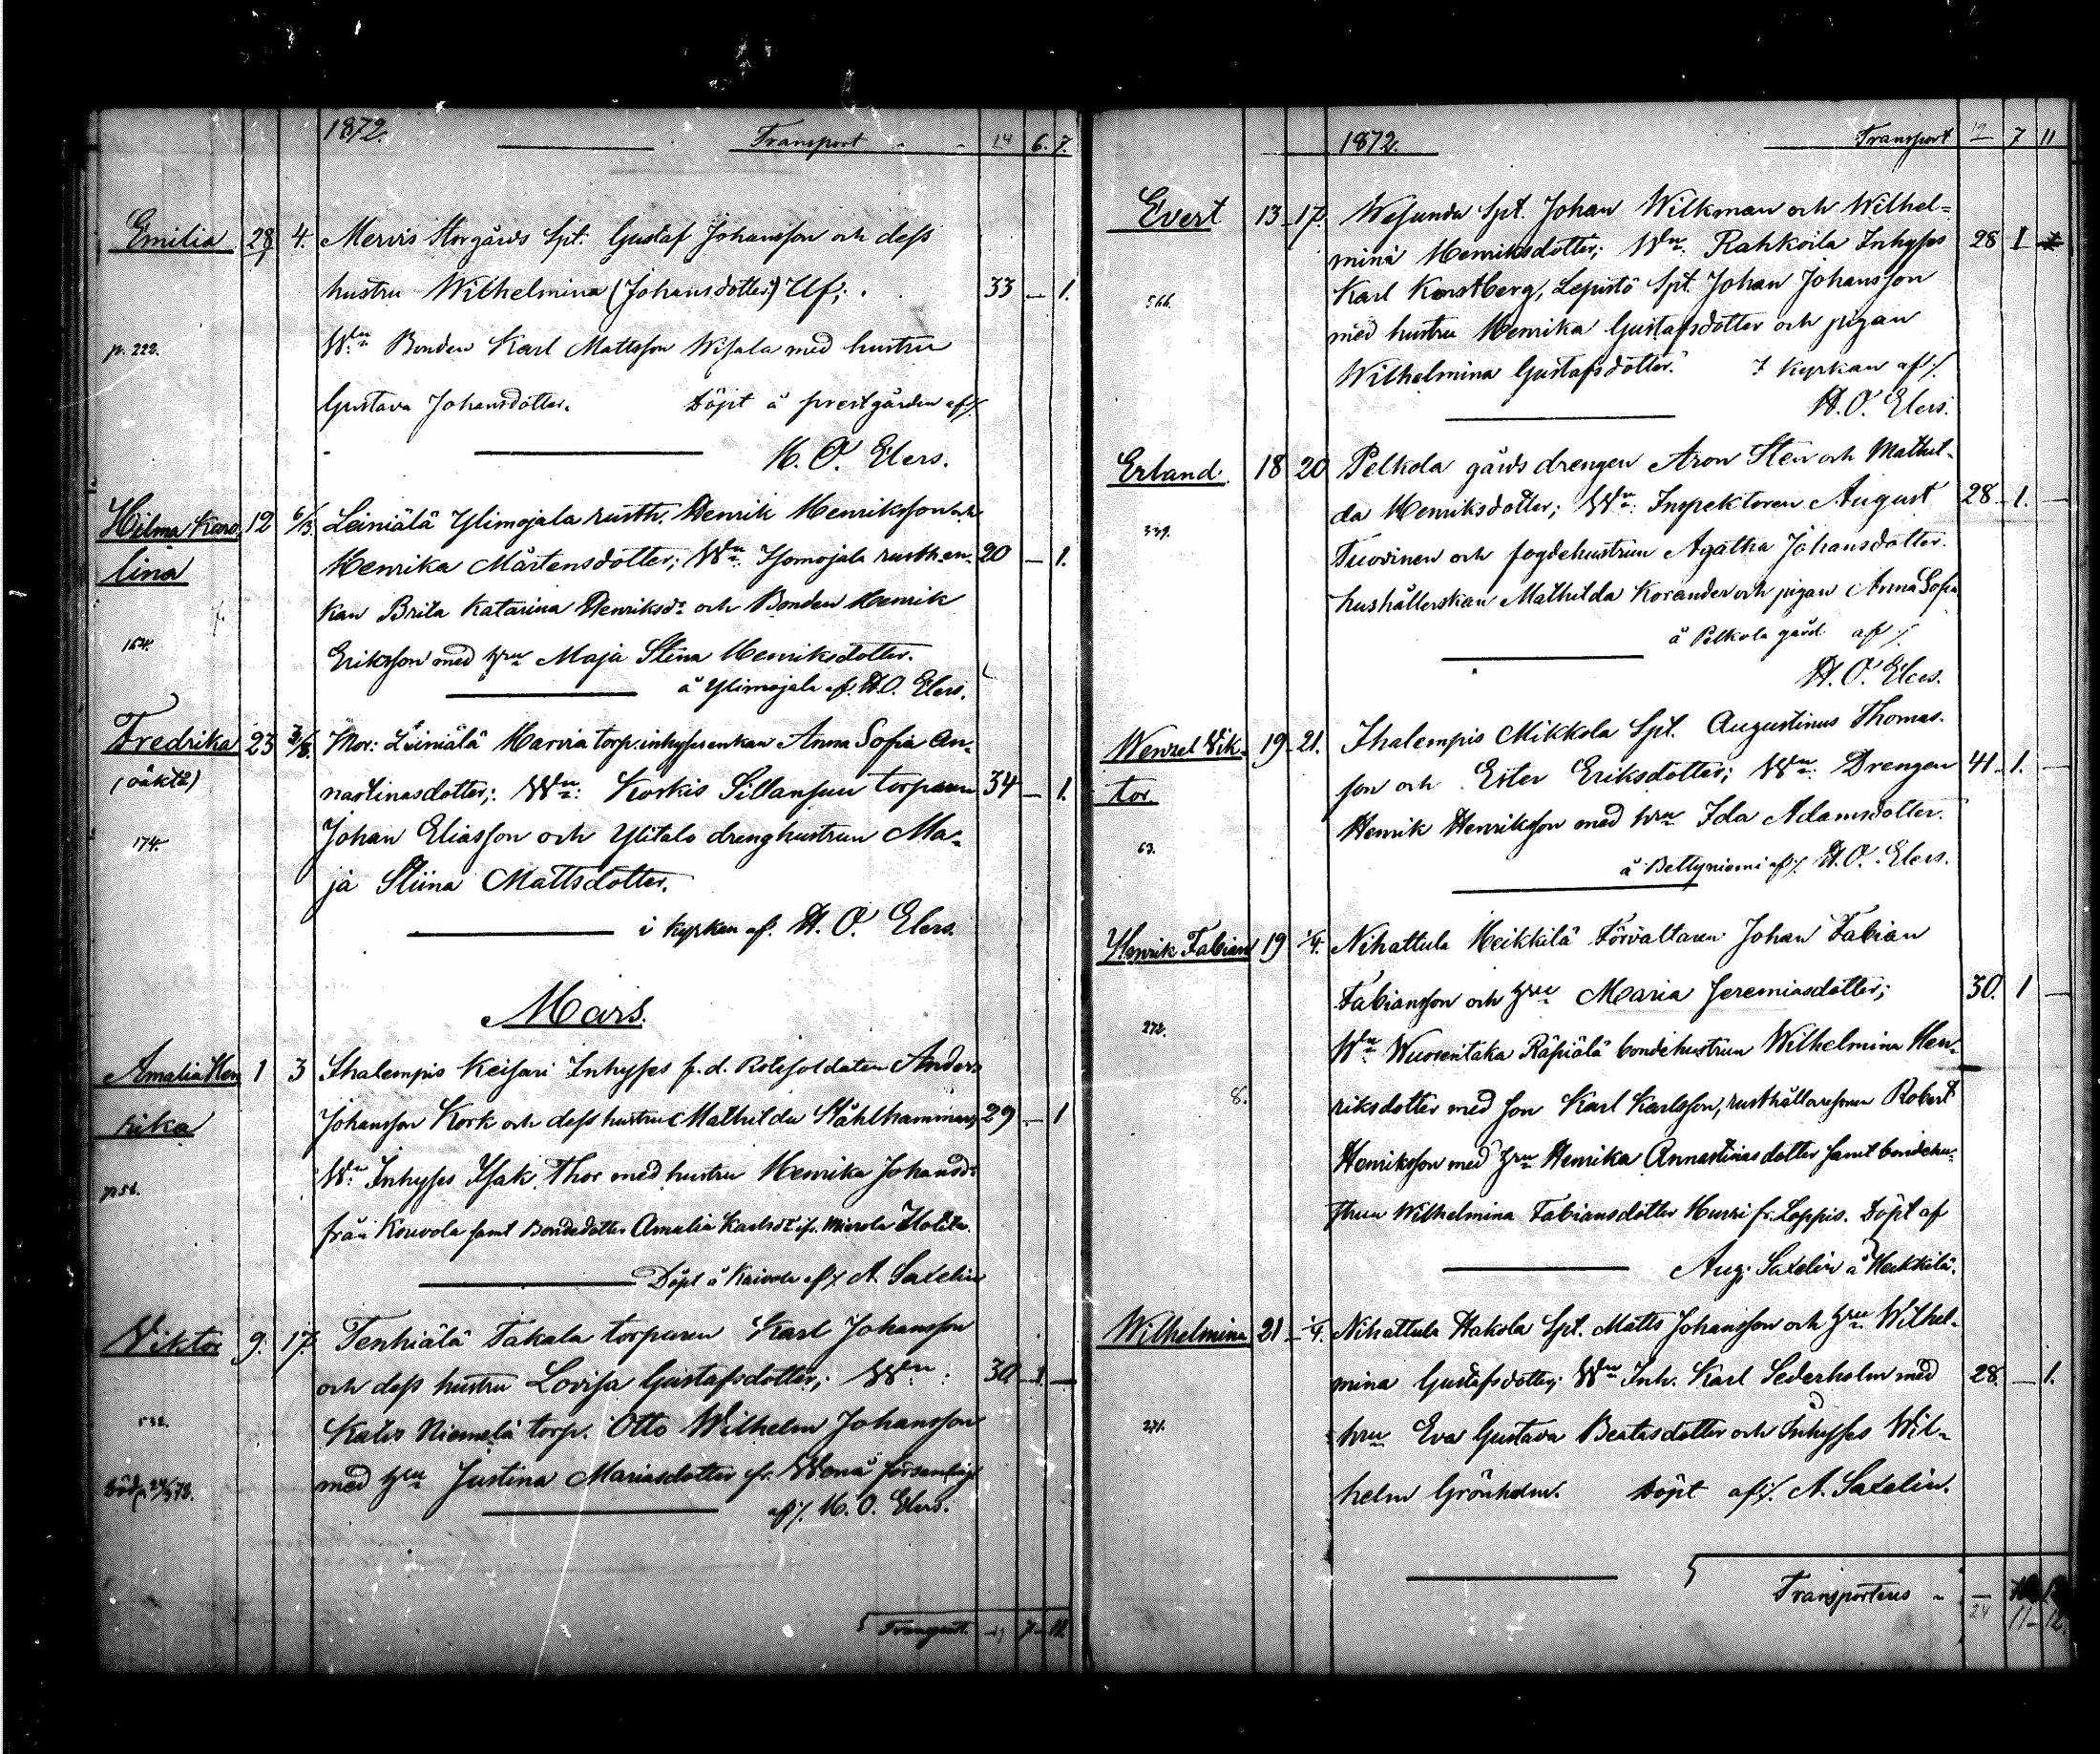 1872. Transport 14 6. 7.
Emilia 28 4. Mervis Storgårds Spt. Gustaf Johansson och dess
hustru Wilhelmina (Johansdotter) Ulf; 33 — 1.
p. 223. Wdn Bonden Karl Mattsson Wisala med hustru
Gustava Johansdotter. Döpt å prestgården af/.
H. O. Elers.
Hilma Karo 12 6/3. Leiniälä Ylimojala rusth. Henrik Henriksson
lina Henrika Mårtensdotter; Wdn: Isomojala rusth.en- 20 — 1.
kan Brita Katarina Henriksdr och Bonden Henrik
164. Eriksson med hru Maja Stina Henriksdotter.
å Ylimojala af. H.O. Elers.
Fredrika 23 3/3. Mor: Leiniälä Harvia torp: inhysesenkan Anna Sofia An-
(oäkta) nastinasdotter; Wdn: Korkis Sillansuu torparen 34 — 1.
174. Johan Eliasson och Ylitalo drenghustrun Ma-
ja Stiina Mattsdotter.
i kyrkan af. H. O. Elers.
Mars.
Amalia Hen 1 3 Ihalempis Keisari Inhyses f.d. Rotesoldaten Anders
rika Johansson Kork och dess hustru Mathilda Ståhlhammar; 29 — 1
p 56. Wdn Inhyses Isak Thor med hustru Henrika Johansdr
från Kouvola samt Bondedotter Amalia Karlsdr
Döpt å af/. A. Saxelin
Viktor 9. 17. Tenhiälä Takala torparen Karl Johansson
och dess hustru Lovisa Gustafsdotter; Wdn: 30 — 1. —
532. Katis Niemelä torp. Otto Wilhelm Johansson
död med hru Justina Mariasdotter fr. Wonå församling
af/. H. O. Elers.
Transport. 19 7 — 11.
1872. Transport 19 7 11
Evert 13 17. Wesunda Spt. Johan Wilkman och Wilhel-
mina Henriksdotter; Wdn: Rahkoila Inhyses 28 1
566. Karl Korstberg, Lepistö Spt. Johan Johansson
med hustru Henrika Gustafsdotter och pigan
Wilhelmina Gustafsdotter. I kyrkan af/.
H. O. Elers.
Erland. 18 20 Pelkola gårds drengen Aron Sten och Mathil-
da Henriksdotter; Wdn: Inspektoren August 28 — 1. —
339. Tuovinen och fogdehustrun Agatha Johansdotter.
hushållerskan Mathilda Korander och pigan Anna Sofia
å Pelkola gård af/.
H. O. Elers.
Wenzel Vik- 19 21. Ihalempis Mikkola Spt. Augustinus Thomas-
tor son och Ester Eriksdotter; Wdn: Drengen 41 1. —
63. Henrik Henriksson med hru Ida Adamsdotter.
å Bettyniemi af/. H. O. Elers.
Henrik Fabian 19 1/4. Nihattula Heikkilä Förvaltaren Johan Fabian
Fabiansson och hru Maria Jeremiasdotter; 30. 1 —
272. Wdn Wuorentaka Räpiälä bondehustrun Wilhelmina Hen-
8. riksdotter med son Karl Karlsson, rusthållaresonen Robert
Henriksson med hru Henrika Annastinasdotter samt bondehu-
strun Wilhelmina Fabiansdotter Hurri fr. Loppis. Döpt af
Aug. Saxelin å Heikkilä.
Wilhelmina 21 1/4. Nihattula Hakola Spt. Matts Johansson och hru Wilhel-
mina Gustafsdotter; Wdn Inh. Karl Sederholm med 28. — 1.
271. hru Eva Gustava Beatasdotter och Inhyses Wil-
helm Grönholm. Döpt af/. A. Saxelin.
Transporteras 24 11 — 12.